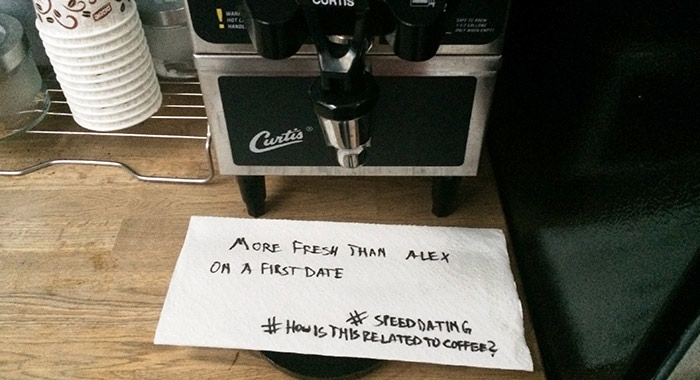 CURTIS
WARN
HOT L
HANDL
SAFE TO BREW
1-1/2 GALLONS
ONLY WHEN EMPTY
Curtis®
MORE FRESH THAN ALEX
ON A FIRST DATE
# SPEEDDATING
# HOW IS THIS RELATED TO COFFEE?